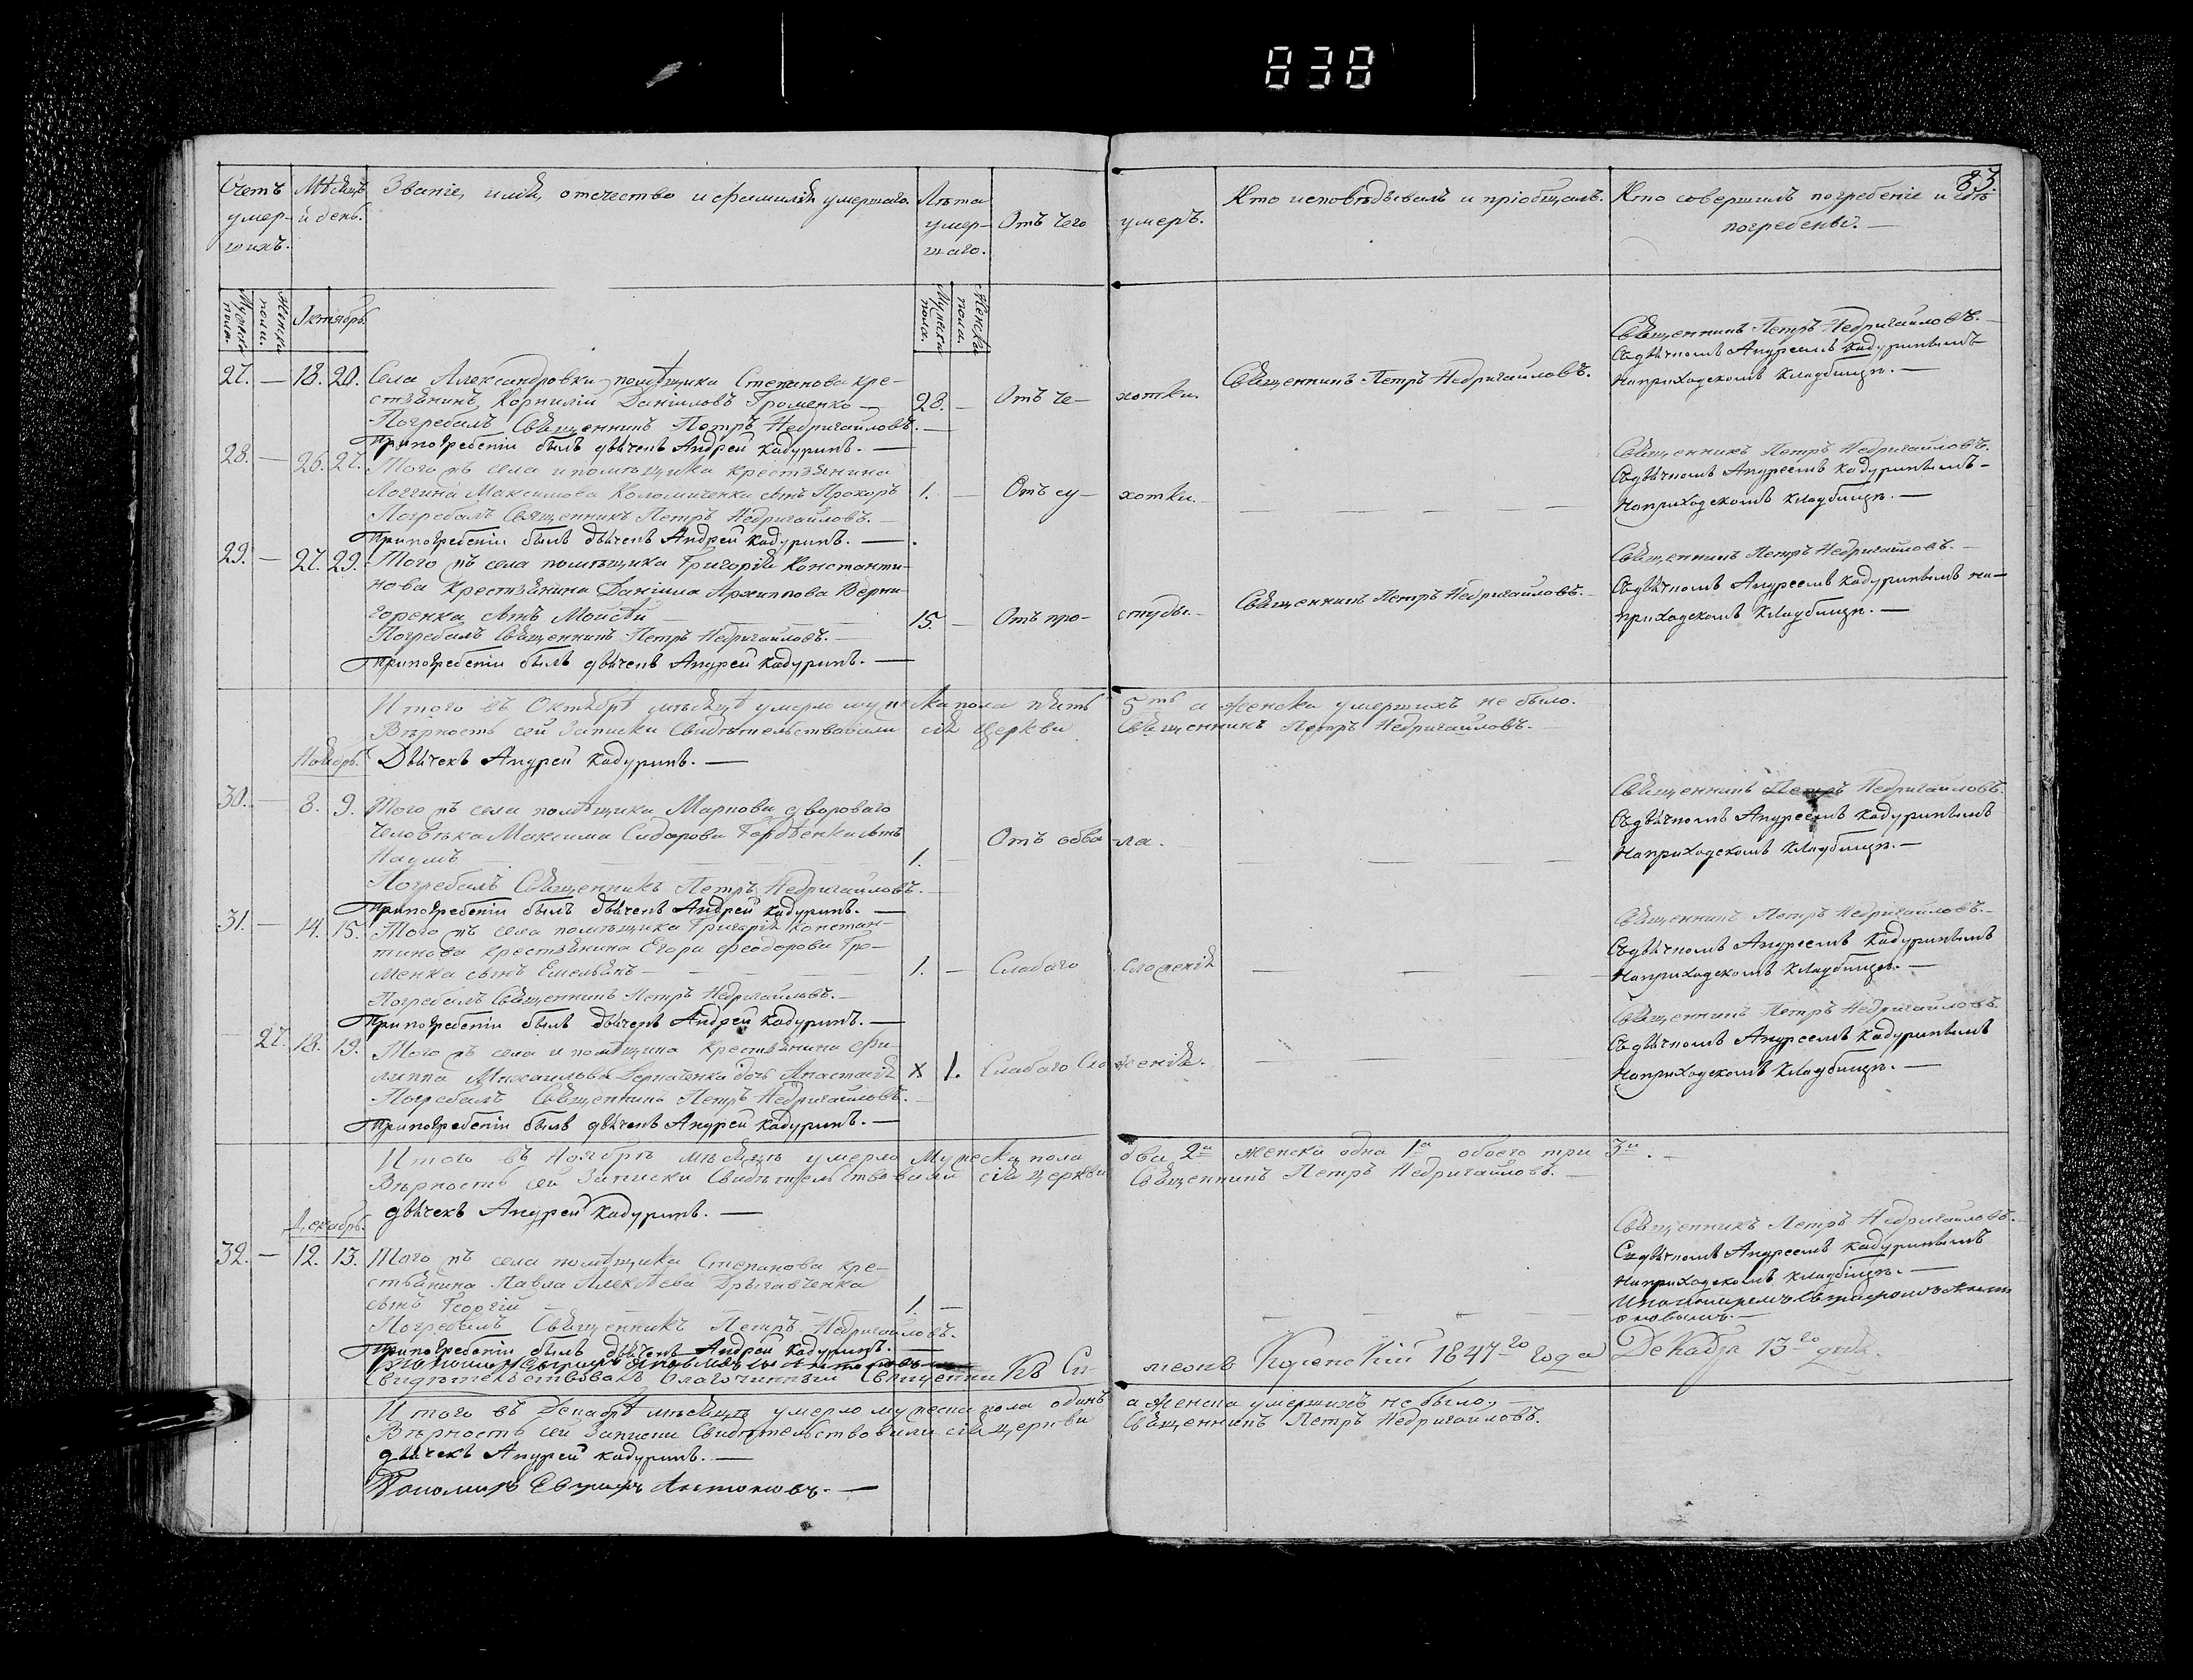 838
83.
Счетъ умер- шихъ.
Мѣсяцъ и день.
Званіе, имя, отечество и фамилія умершаго.
Лѣта умер- шаго.
Отъ чего умеръ.
Кто исповѣдывалъ и пріобщалъ.
Кто совершилъ погребеніе и гдѣ
погребены.
Мужеска пола.
Женска пола.
Октябрь.
Мужеска пола.
Женска пола.
27. — 18. 20. Села Александровки помѣщика Степанова кре-
стьянинъ Корнилій Даніиловъ Громенко — 28. — Отъ че- хотки. Священникъ Петръ Недригайловъ.
Погребалъ Священникъ Петръ Недригайловъ.
При погребеніи былъ дьячекъ Андрей Кадуринъ. —
Священникъ Петръ Недригайловъ.
Съ дьячкомъ Андреемъ Кадуринымъ
На приходскомъ кладбищѣ. —
28. — 26. 27. Того жъ села и помѣщика крестьянина
Логгина Максимова Коломиченка сынъ Прохоръ 1. — Отъ су- хотки. — — —
Погребалъ Священникъ Петръ Недригайловъ. —
При погребеніи былъ дьячекъ Андрей Кадуринъ. —
Священникъ Петръ Недригайловъ.
Съ дьячкомъ Андреемъ Кадуринымъ —
На приходскомъ кладбищѣ. —
29. — 27. 29. Того жъ села помѣщика Григорія Константи-
нова крестьянина Даніила Архиппова Верни-
горенка сынъ Моисей — 15. — Отъ про- студы. — Священникъ Петръ Недригайловъ. —
Погребалъ Священникъ Петръ Недригайловъ. —
При погребеніи былъ дьячекъ Андрей Кадуринъ. —
Священникъ Петръ Недригайловъ. —
Съ дьячкомъ Андреемъ Кадуринымъ на-
приходскомъ кладбищѣ. —
Итого въ Октябрѣ мѣсяцѣ умерло мужеска пола пять 5ть а женска умершихъ не было.
Вѣрность сей записки Свидѣтельствовали сія Церкви Священникъ Петръ Недригайловъ. —
Дьячекъ Андрей Кадуринъ. —
Ноябрь.
30. — 8. 9. Того жъ села помѣщика Маркова двороваго
человѣка Максима Сидорова Гордѣенка сынъ
Наумъ — — — 1. Отъ обва- ла. — — —
Погребалъ Священникъ Петръ Недригайловъ. —
При погребеніи былъ дьячекъ Андрей Кадуринъ. —
Священникъ Петръ Недригайловъ.
Съ дьячкомъ Андреемъ Кадуринымъ
На приходскомъ кладбищѣ. —
31. — 14. 15. Того жъ села помѣщика Григорія Констан-
тинова крестьянина Егора Феодорова Гро-
менка сынъ Емельянъ — 1. — Слабаго сложенія — — —
Погребалъ Священникъ Петръ Недригайловъ. —
При погребеніи былъ дьячекъ Андрей Кадуринъ. —
Священникъ Петръ Недригайловъ. —
Съ дьячкомъ Андреемъ Кадуринымъ
На приходскомъ кладбищѣ. —
— 27. 18. 19. Того жъ села и помѣщика крестьянина Фи-
липпа Михаилова дочь Анастасія X 1. Слабаго сло женія. — —
Погребалъ Священникъ Петръ Недригайловъ. —
При погребеніи былъ дьячекъ Андрей Кадуринъ. —
Священникъ Петръ Недригайловъ.
Съ дьячкомъ Андреемъ Кадуринымъ
На приходскомъ кладбищѣ. —
Итого въ Ноябрѣ мѣсяцѣ умерло Мужеска пола два 2а женска одна 1а обоего три 3и. —
Вѣрность сей Записки Свидѣтельствовали сія церкви Священникъ Петръ Недригайловъ. —
дьячекъ Андрей Кадуринъ. —
Декабрь.
32. — 12. 13. Того жъ села помѣщика Степанова кре-
стьянина Павла Алексѣева
сынъ Георгій — — 1. — — — —
Погребалъ Священникъ Петръ Недригайловъ.
При погребеніи былъ дьячекъ Андрей Кадуринъ. —
Священникъ Петръ Недригайловъ. —
Съ дьячкомъ Андреемъ Кадуринымъ
На приходскомъ кладбищѣ. —
И пономаремъ
Свидѣтельствовалъ Благочинный Священникъ Си- меонъ 1847го года Декабря 13го дня.
Итого въ Декабрѣ мѣсяцѣ умерло мужеска пола одинъ а женска умершихъ не было, —
Вѣрность сей Записки Свидѣтельствовали сія церкви Священникъ Петръ Недригайловъ.
дьячекъ Андрей Кадуринъ. —
Пономарь Антоновъ. —